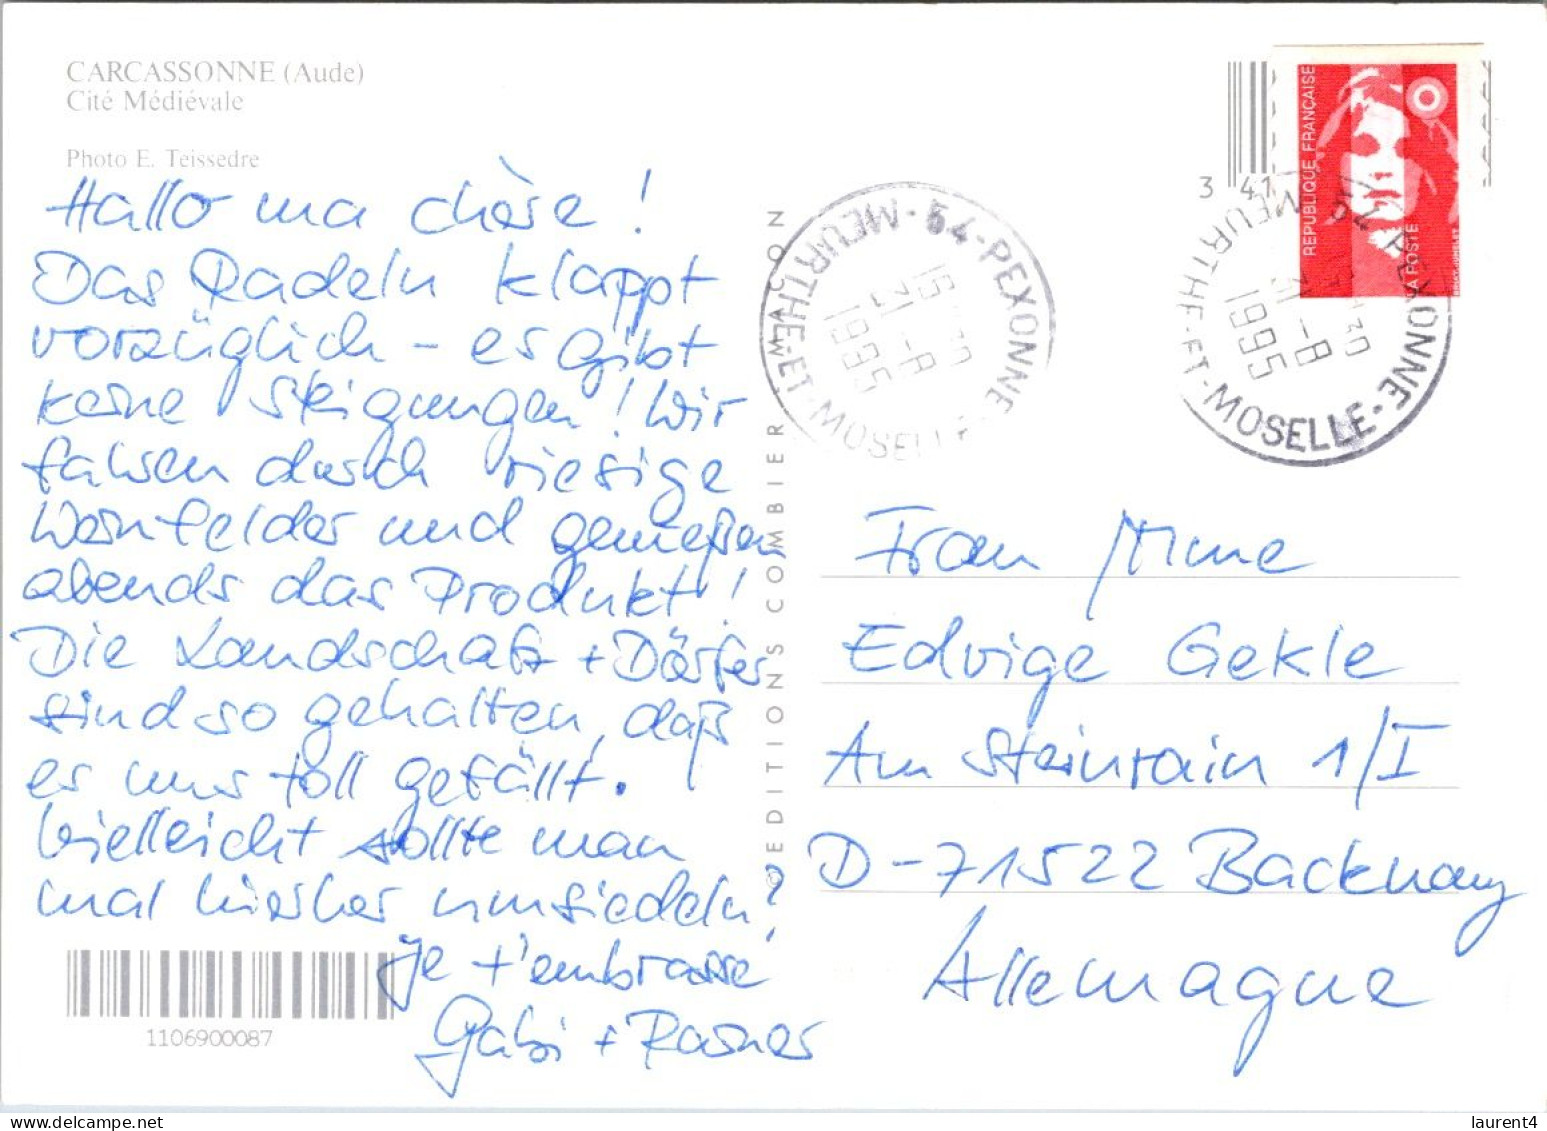 CARCASSONNE (Aude)
Cité Médiévale
Photo E. Teissedre
Hallo ma chère !
Das Radeln klappt
vorzüglich – es gibt
keine Steigungen! Wir
fahren durch riesige
Weinfelder und genießen
abends das Produkt!
Die Landschaft + Dörfer
sind so gehalten, daß
es uns toll gefällt.
Vielleicht sollte man
mal hierher umsiedeln?
Je t'embrasse
Gabi + Rainer
1106900087
©EDITIONS COMBIER MACON
54-PEXONNE
MEURTHE-ET-MOSELLE
31-8
1995
3 41
REPUBLIQUE FRANÇAISE
LA POSTE
54-PEXONNE
MEURTHE-ET-MOSELLE
31-8
1995
Frau Mme
Edvige Gekle
Am Steinrain 1/I
D-71522 Backnang
Allemagne
laurent4